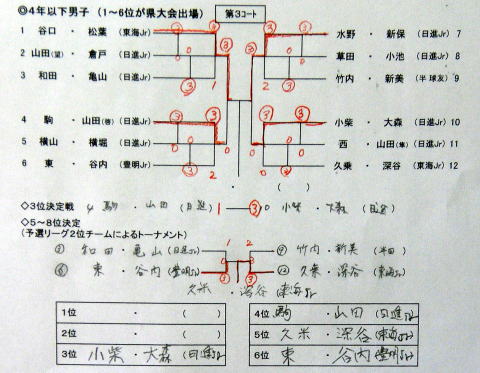 ◎4年以下男子(1~6位が県大会出場) 第3コート
1 谷口 ・ 松葉 (東海Jr)
2 山田(望) ・ 倉戸 (日進Jr)
3 和田 ・ 亀山 (日進Jr)
4 駒 ・ 山田(啓) (日進Jr)
5 横山 ・ 横堀 (日進Jr)
6 東 ・ 谷内 (豊明Jr)
水野 ・ 新保 (日進Jr) 7
草田 ・ 小池 (日進Jr) 8
竹内 ・ 新美 (半球友) 9
小柴 ・ 大森 (日進Jr) 10
西 ・ 山田(隼) (日進Jr) 11
久乗 ・ 深谷 (東海Jr) 12
・ ( )
◇3位決定戦 4 駒 ・ 山田 (日進) 1 ③ 0 小柴 ・ 大森 (日進)
◇5~8位決定
(予選リーグ2位チームによるトーナメント)
③ 和田 ・ 亀山 (日進Jr) 1 2 ⑨ 竹内 ・ 新美 (半田)
⑥ 東 ・ 谷内 (豊明Jr) ③ ③ ⑫ 久乗 ・ 深谷 (東海Jr)
久米 ・ 深谷 東海Jr
1位 ・ ( )
2位 ・ ( )
3位 小柴 ・ 大森 (日進Jr)
4位 駒 ・ 山田 (日進Jr)
5位 久米 ・ 深谷 (東海Jr)
6位 東 ・ 谷内 (豊明Jr)